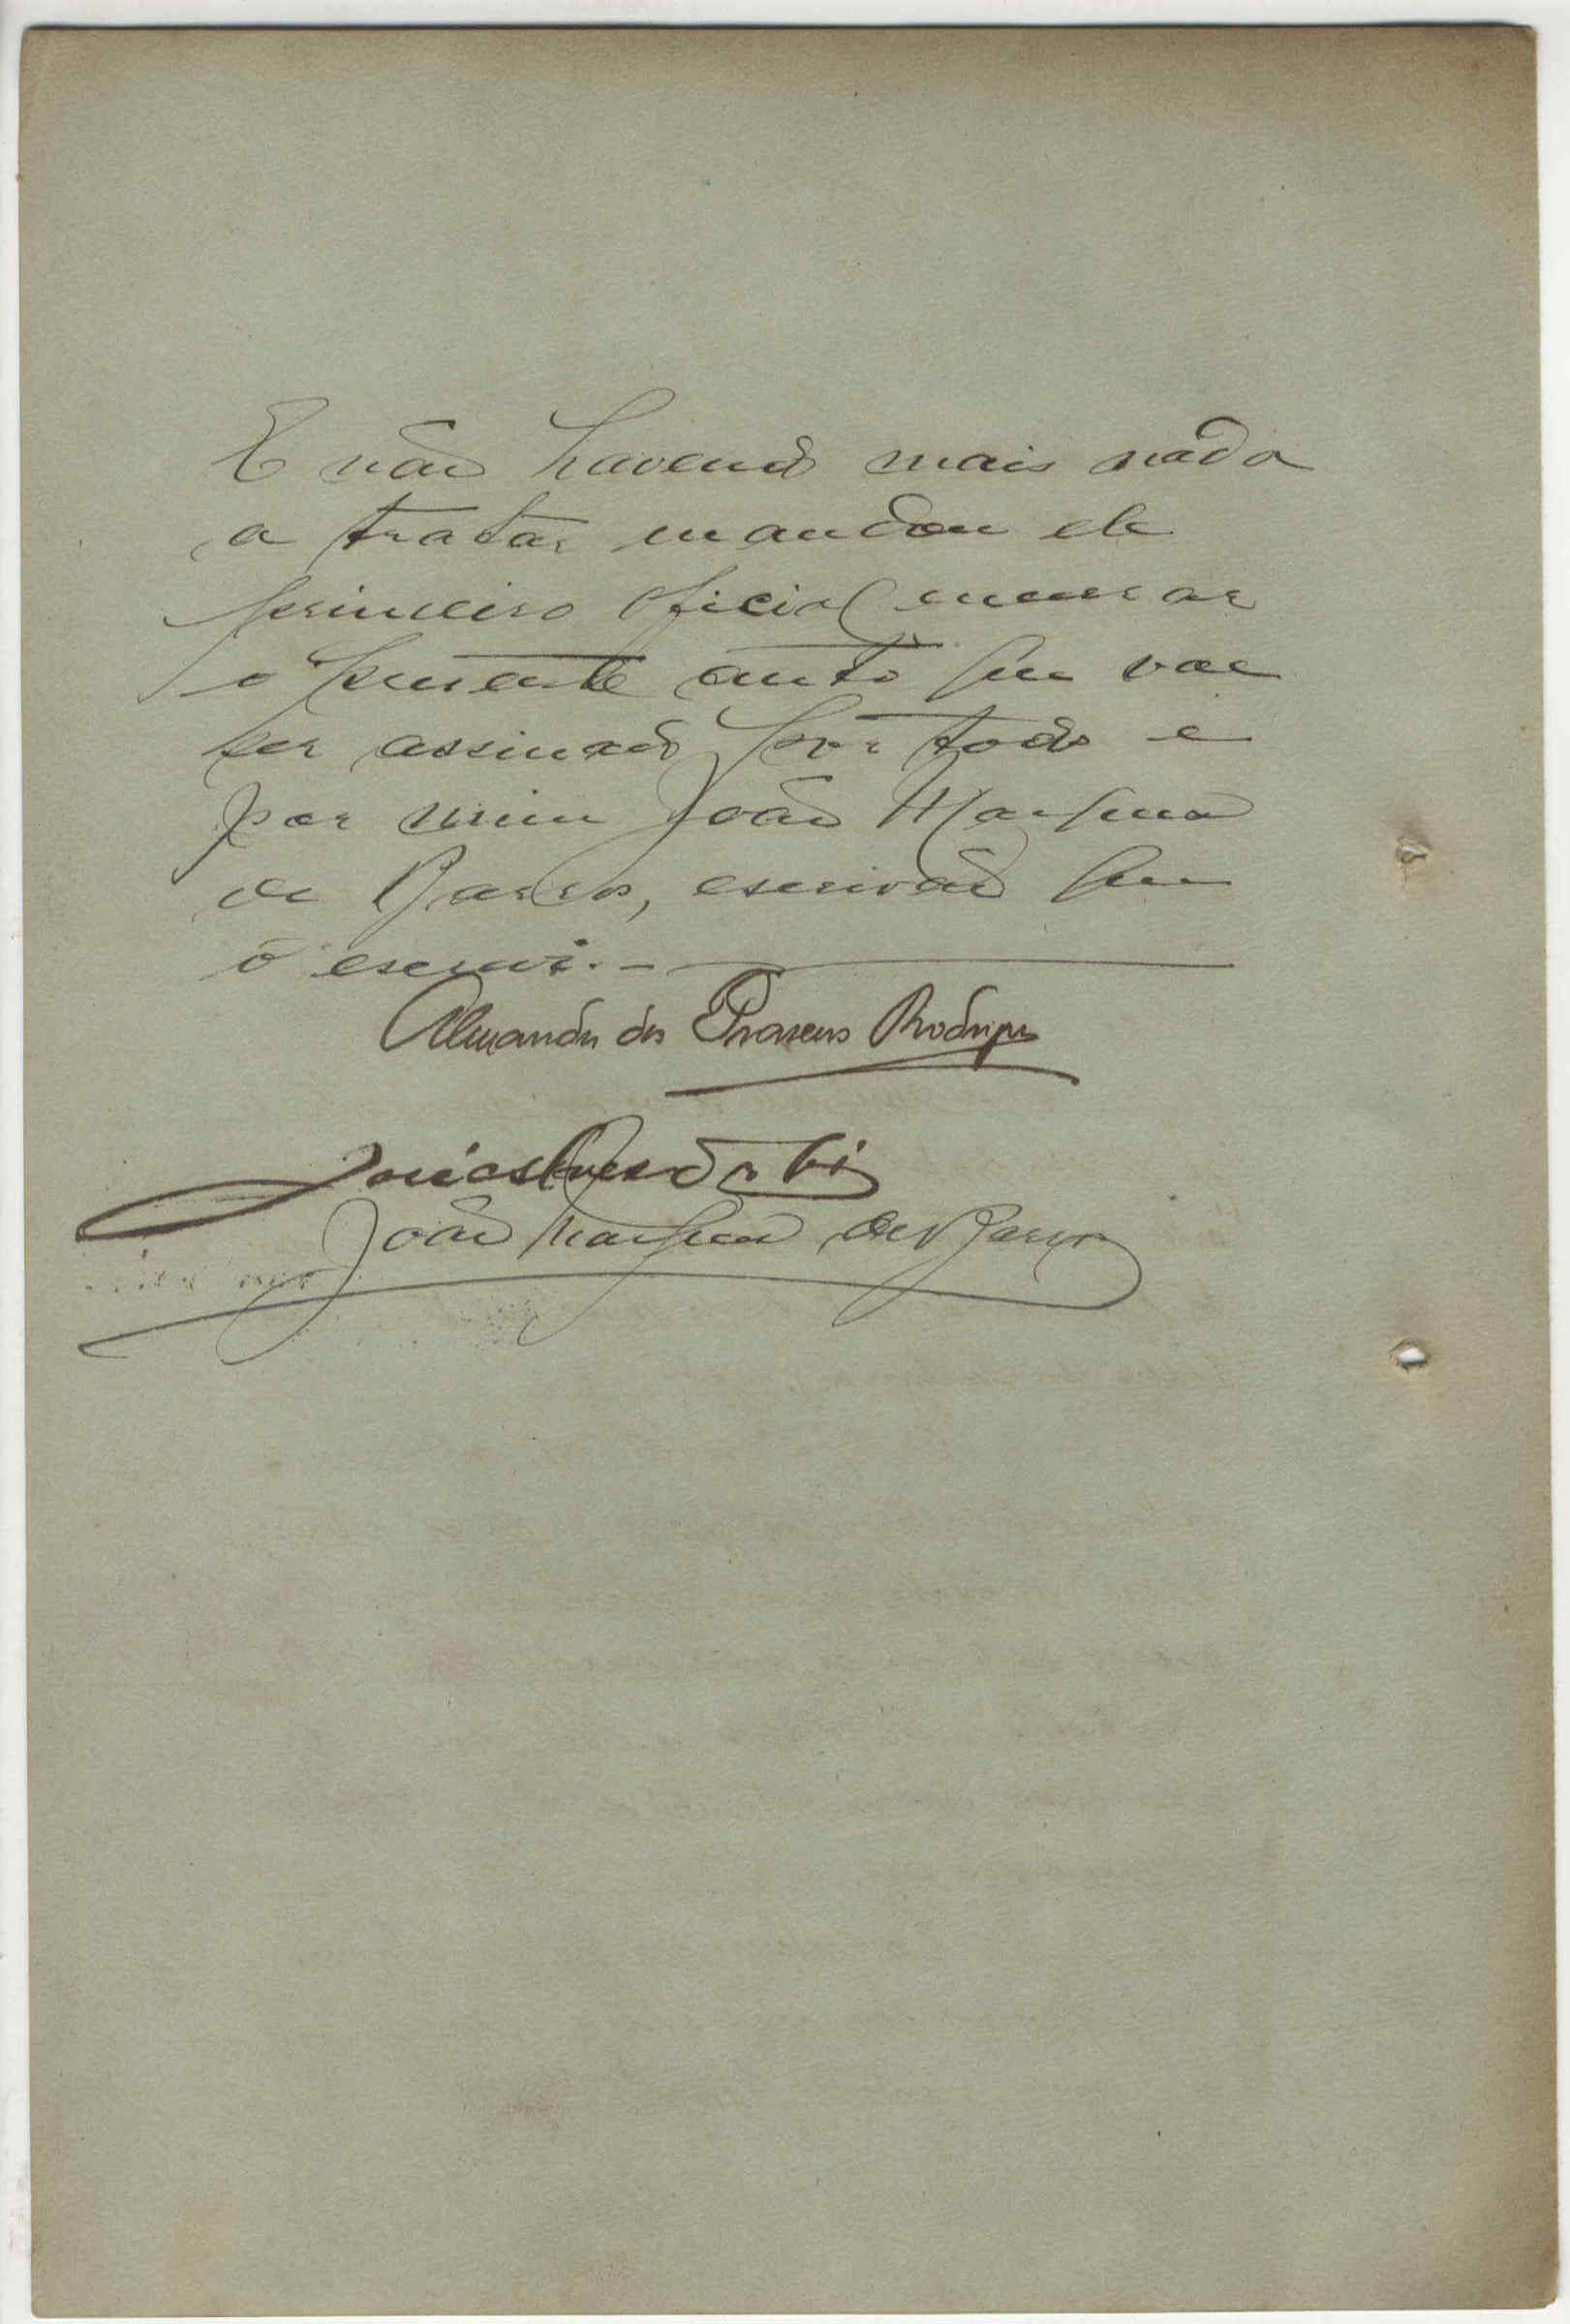 E não havendo mais nada
a tratar mandou ele
primeiro oficial encerrar
o presente auto que vae
ser assinado por todos e
por mim João Marques
de Barros, escrivão que
o escrevi. -
Alexandre dos Prazeres Rodrigues
João Marques de Barros